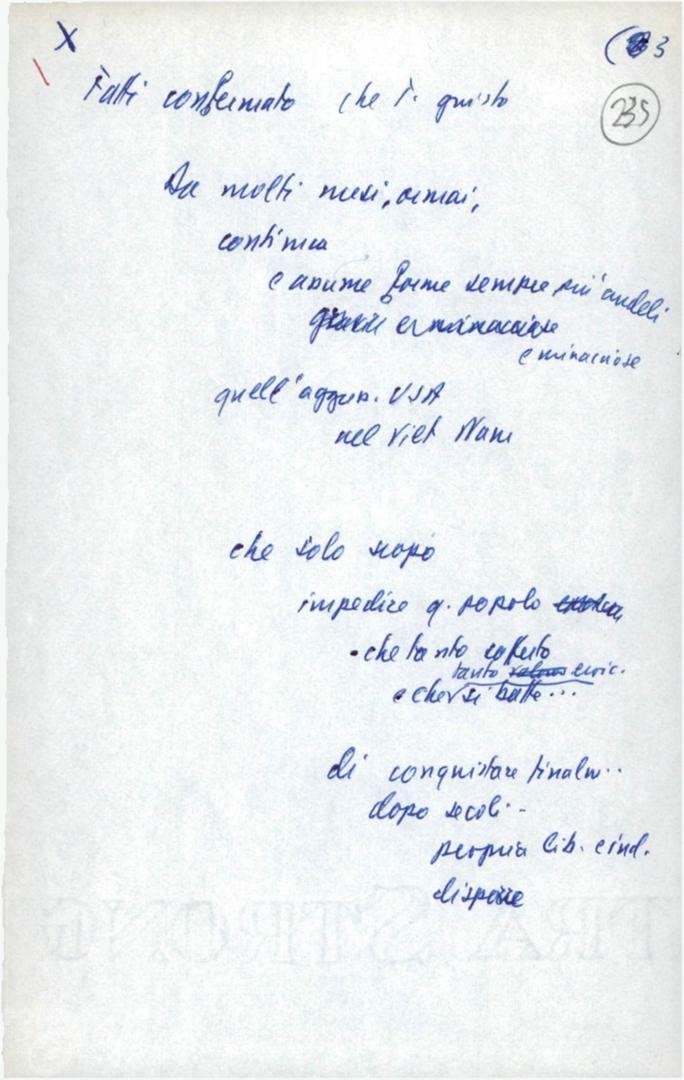 X
3
235
Fatti confermato che F. giusto
Da molti mesi, ormai,
continua
e assume forme sempre più crudeli
gravi e minacciose
e minacciose
quell'aggres. USA
nel Viet Nam
che solo scopo
impedire q. popolo
- che tanto sofferto
tanto valoros eroic.
e che si batte...
di conquistare finalm..
dopo secoli..
propria lib. e ind.
disporre
EXTRA STRONG